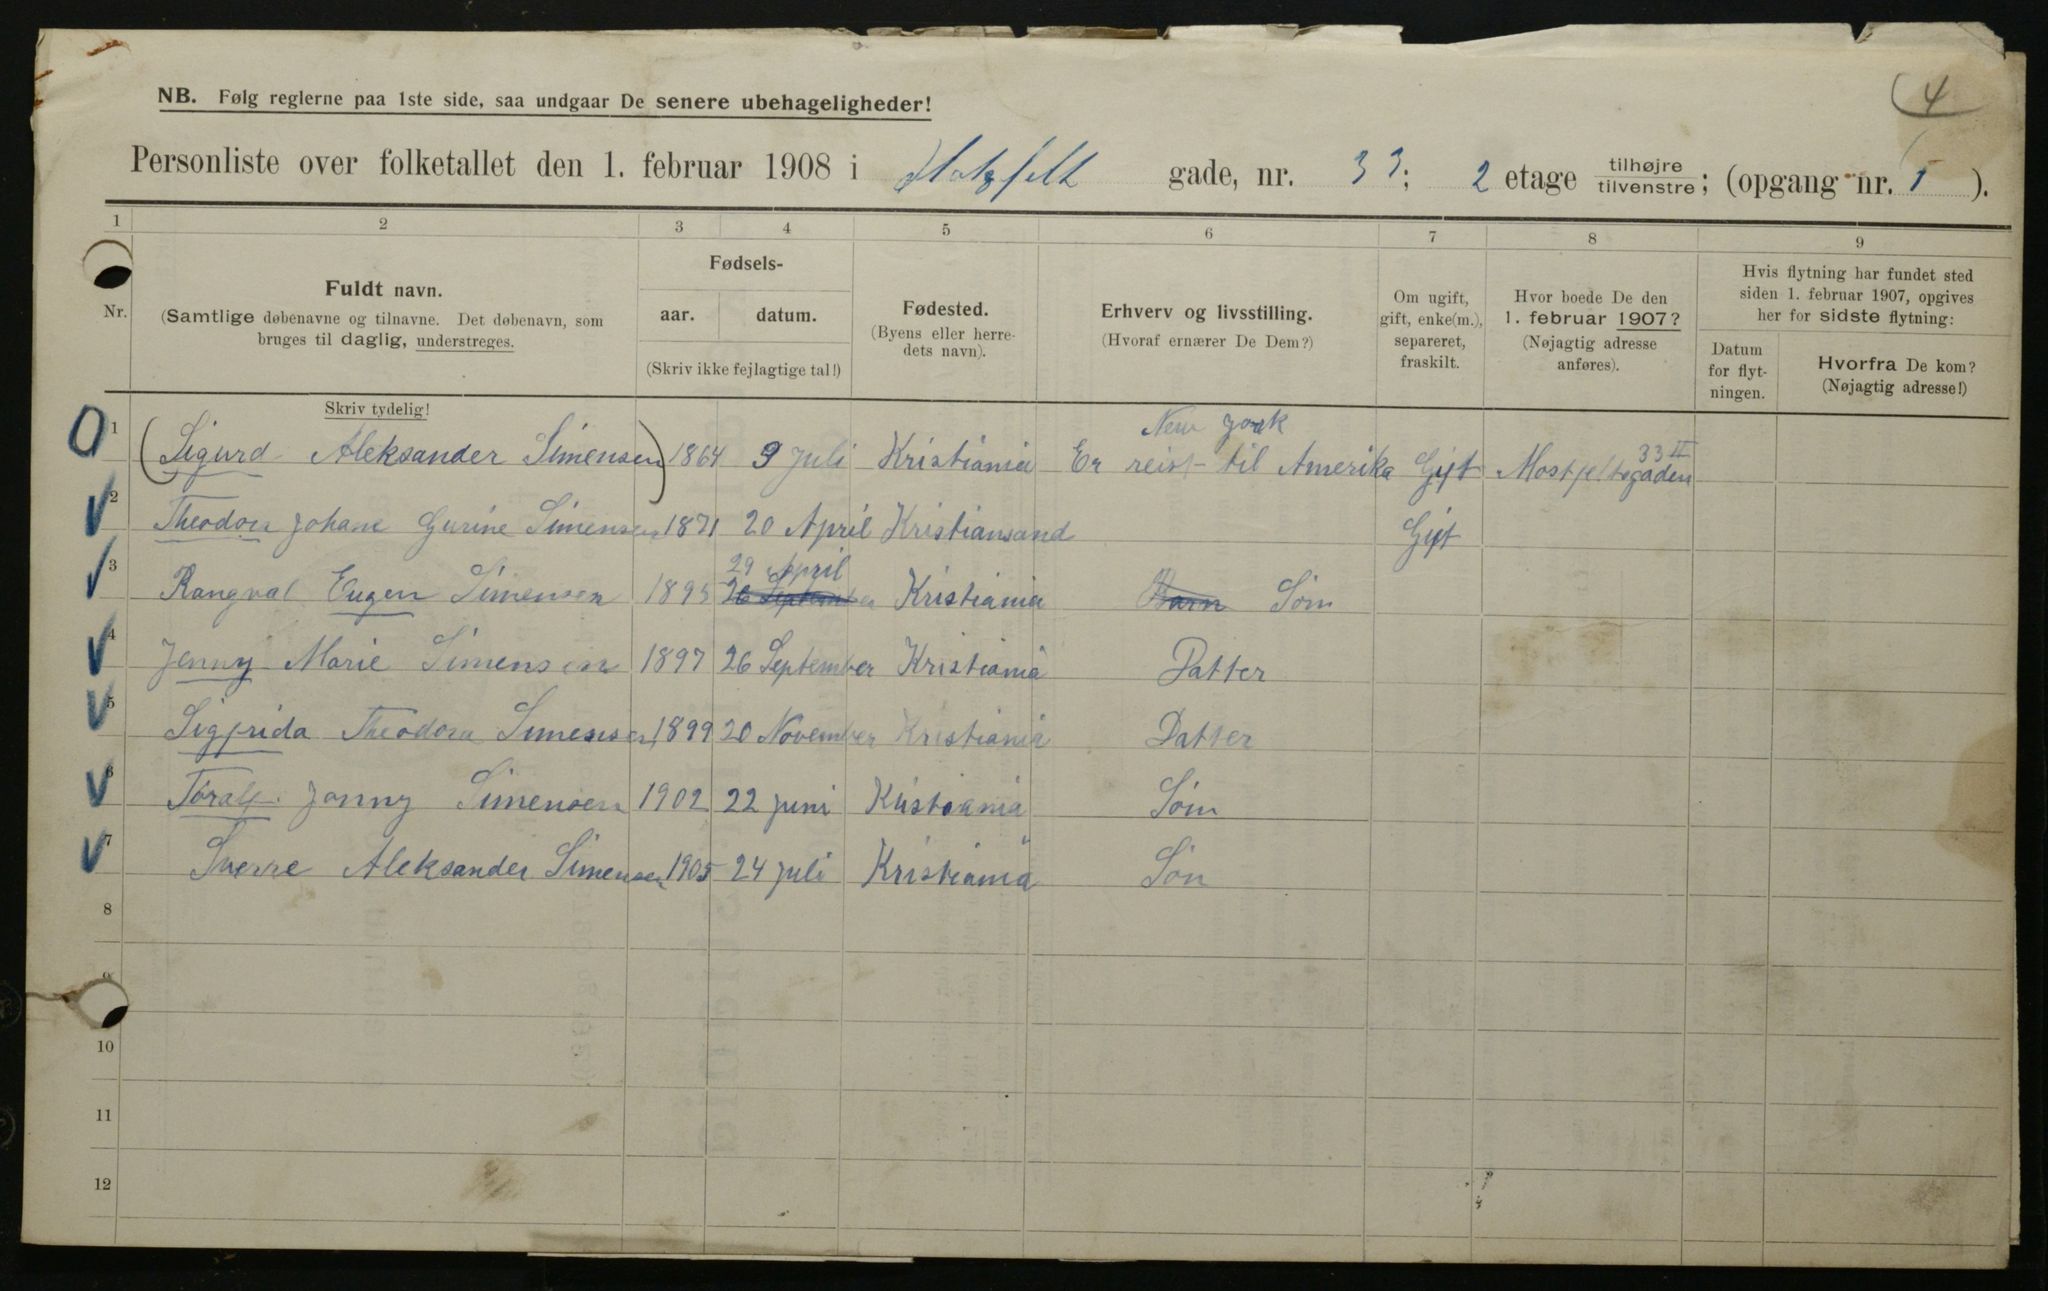 4
NB. Følg reglerne paa 1ste side, saa undgaar De senere ubehageligheder!
Personliste over folketallet den 1. februar 1908 i gade, nr. 33; 2 etage tilhøjre tilvenstre; (opgang nr. 1 ).
1 2 3 4 5 6 7 8 9
Nr.
Fuldt navn.
(Samtlige døbenavne og tilnavne. Det døbenavn, som
bruges til daglig, understreges.
Skriv tydelig!
Fødsels-
aar. datum.
(Skriv ikke fejlagtige tal!)
Fødested.
(Byens eller herre-
dets navn).
Erhverv og livsstilling.
(Hvoraf ernærer De Dem?)
Om ugift,
gift, enke(m.),
separeret,
fraskilt.
Hvor boede De den
1. februar 1907?
(Nøjagtig adresse
anføres).
Hvis flytning har fundet sted
siden 1. februar 1907, opgives
her for sidste flytning:
Datum
for flyt-
ningen.
Hvorfra De kom?
(Nøjagtig adresse!)
New York
33 II
1 (Sigurd Aleksander Simensen) 1864 9 Juli Kristiania Er reist til Amerika Gift Mostfeltsgaden
2 Theodora Johane Gurine Simensen 1871 20 April Kristiansand Gift
29 April
3 Rangval Eugen Simensen 1895 26 September Kristiania Barn Søm
4 Jenny Marie Simensen 1897 26 September Kristiania Datter
5 Sigfrida Theodora Simensen 1899 20 November Kristiania Datter
6 Toralf Jonny Simensen 1902 22 Juni Kristiania Søm
7 Sverre Aleksander Simensen 1905 24 Juli Kristiania Søn
8
9
10
11
12